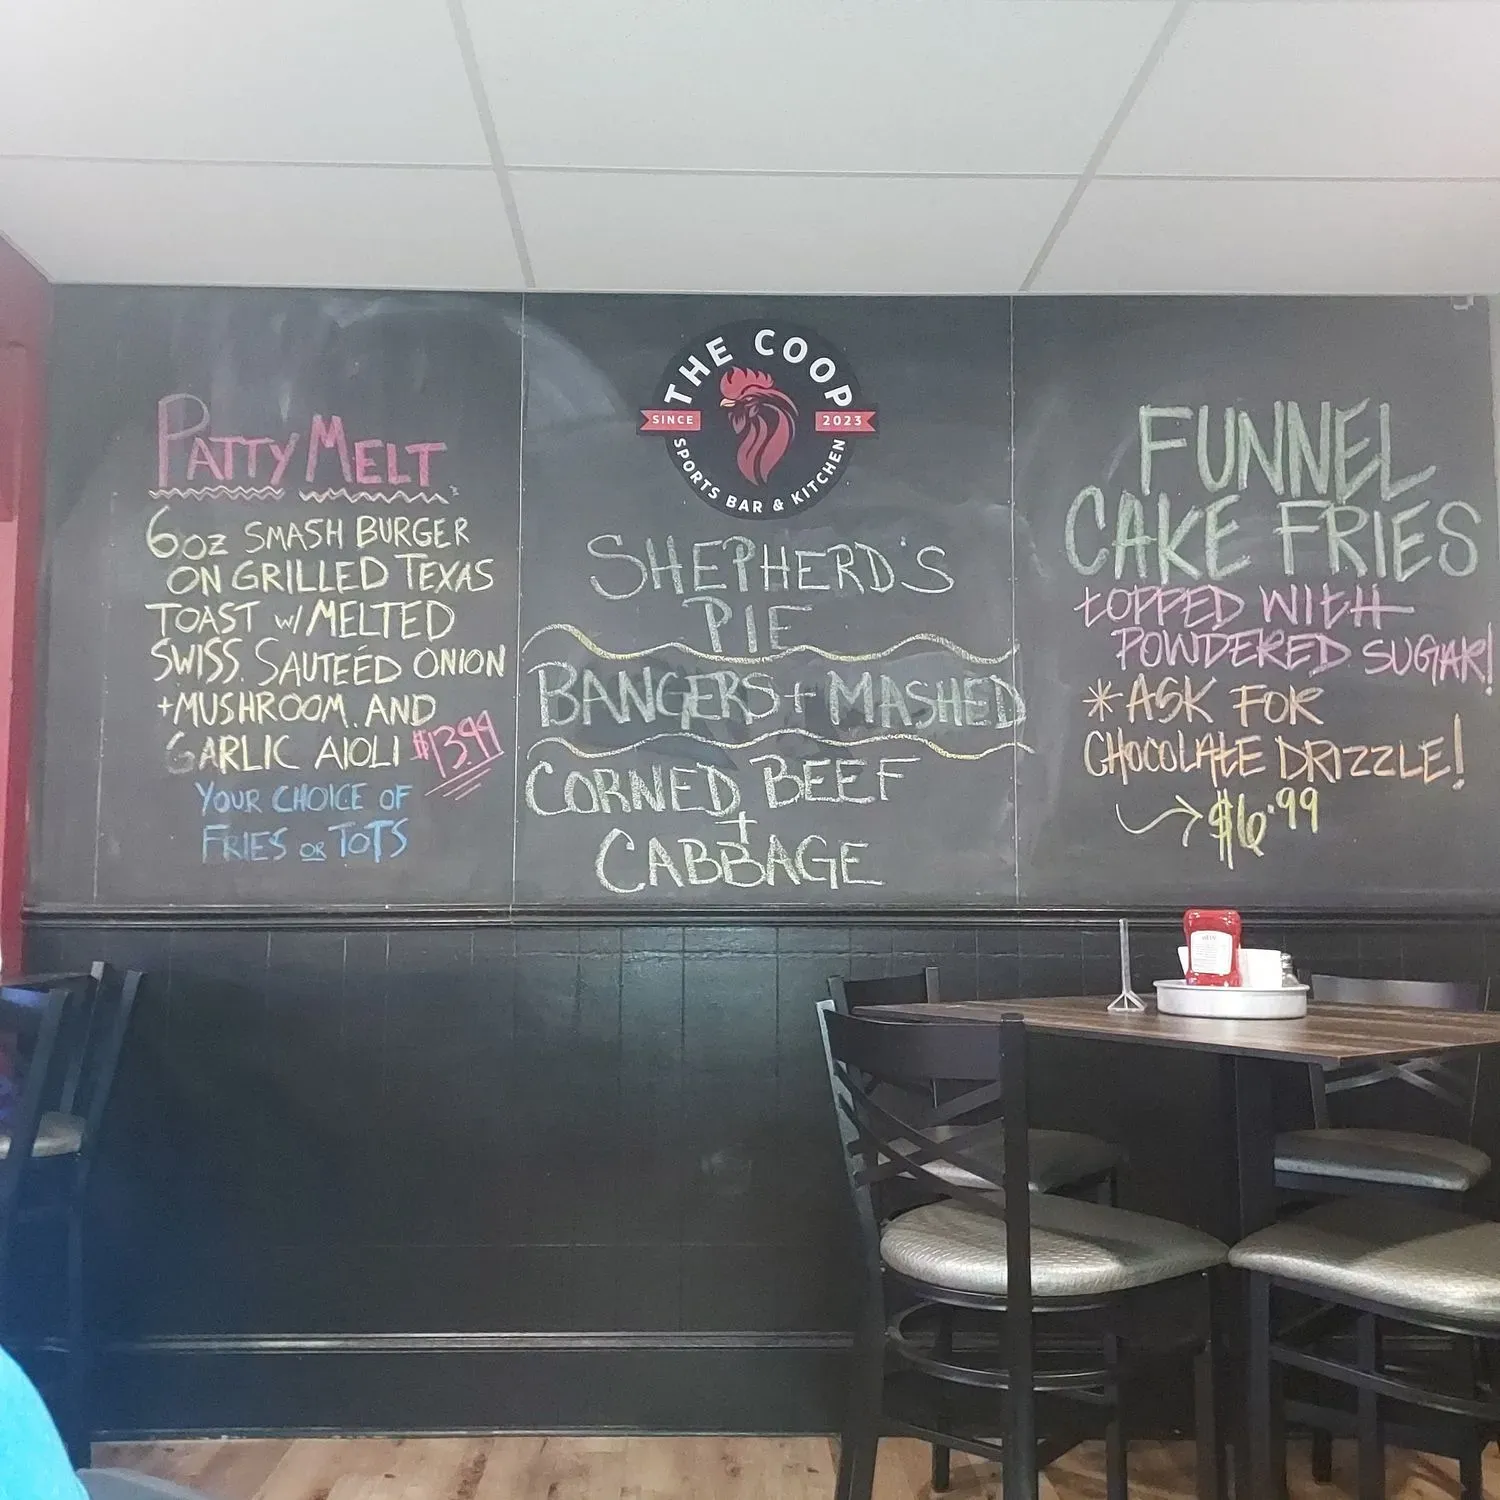 PATTY MELT
6oz SMASH BURGER
ON GRILLED TEXAS
TOAST w/ MELTED
SWISS. SAUTEÉD ONION
+ MUSHROOM. AND
GARLIC AIOLI $13.99
YOUR CHOICE OF
FRIES OR TOTS
THE COOP
SINCE 2023
SPORTS BAR & KITCHEN
SHEPHERD'S
PIE
BANGERS + MASHED
CORNED BEEF
+
CABBAGE
FUNNEL
CAKE FRIES
tOPPED WItH
POWDERED SUGAR!
* ASK FOR
CHOCOLAtE DRIZZLE!
$6.99